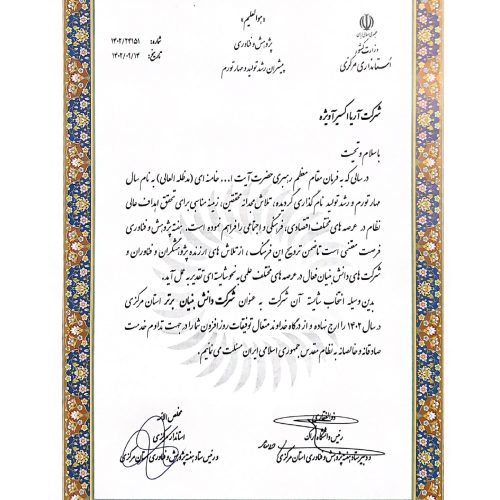 «هوالعلیم»
پژوهش و فناوری
پیشران رشد تولید و مهار تورم
شماره: ۱۴۰۲/۲۴۱۵۱
تاریخ: ۱۴۰۲/۰۹/۱۴
جمهوری اسلامی ایران
وزارت کشور
استانداری مرکزی
شرکت آریا اکسیر آویژه
باسلام و تحیت
در سالی که به فرمان مقام معظم رهبری حضرت آیت ا... خامنه ای (مدظله العالی) به نام سال
مهار تورم و رشد تولید نام گذاری گردیده، تلاش مجدانه محققین، زمینه مناسبی برای تحقق اهداف عالی
نظام در عرصه های مختلف اقتصادی، فرهنگی و اجتماعی را فراهم نموده است. هفته پژوهش و فناوری
فرصت مغتنمی است تا ضمن ترویج این فرهنگ، از تلاش های ارزنده پژوهشگران و فناوران و
شرکت های دانش بنیان فعال در عرصه های مختلف علمی به نحو شایسته ای تقدیر به عمل آید.
بدین وسیله انتخاب شایسته آن شرکت به عنوان شرکت دانش بنیان برتر استان مرکزی
در سال ۱۴۰۲ را ارج نهاده و از درگاه خداوند متعال توفیقات روزافزون شما را در جهت تداوم خدمت
صادقانه و خالصانه به نظام مقدس جمهوری اسلامی ایران مسئلت می نمایم.
رئیس دانشگاه اراک
و دبیر ستاد هفته پژوهش و فناوری استان مرکزی
استاندار مرکزی
و رئیس ستاد هفته پژوهش و فناوری استان مرکزی